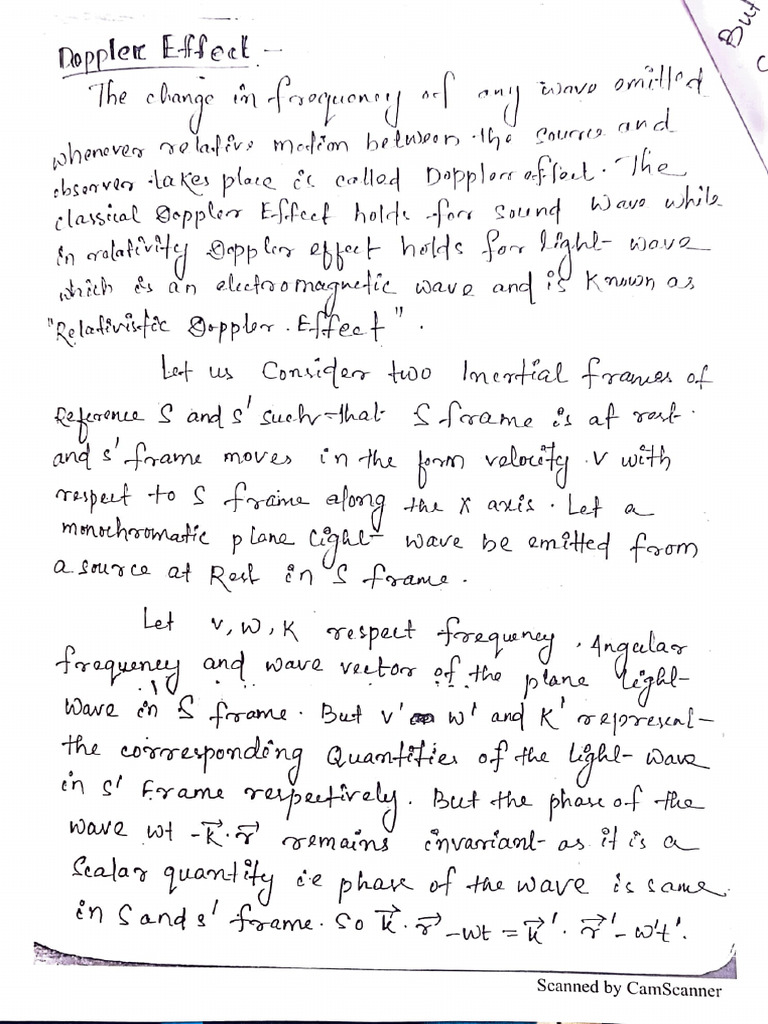 But
C
Doppler Effect :-
The change in frequency of any wave omitted
whenever relative motion between the source and
observer takes place is called Doppler effect. The
classical Doppler Effect holds for sound wave while
in relativity Doppler effect holds for light wave
which is an electromagnetic wave and is known as
"Relativistic Doppler Effect".
Let us Consider two Inertial frames of
Reference S and S' such that S frame is at rest.
and S' frame moves in the form velocity v with
respect to S frame along the X axis. Let a
monochromatic plane light wave be emitted from
a source at Rest in S frame.
Let v, w, K respect frequency, Angular
frequency and wave vector of the plane light
wave in S frame. But v' w' and K' represent
the corresponding Quantities of the light wave
in S' Frame respectively. But the phase of the
wave wt - k⃗ · r⃗ remains invariant as it is a
Scalar quantity i.e phase of the wave is same
in S and S' frame. So k⃗ · r⃗ - wt = k⃗' · r⃗' - w't'.
Scanned by CamScanner